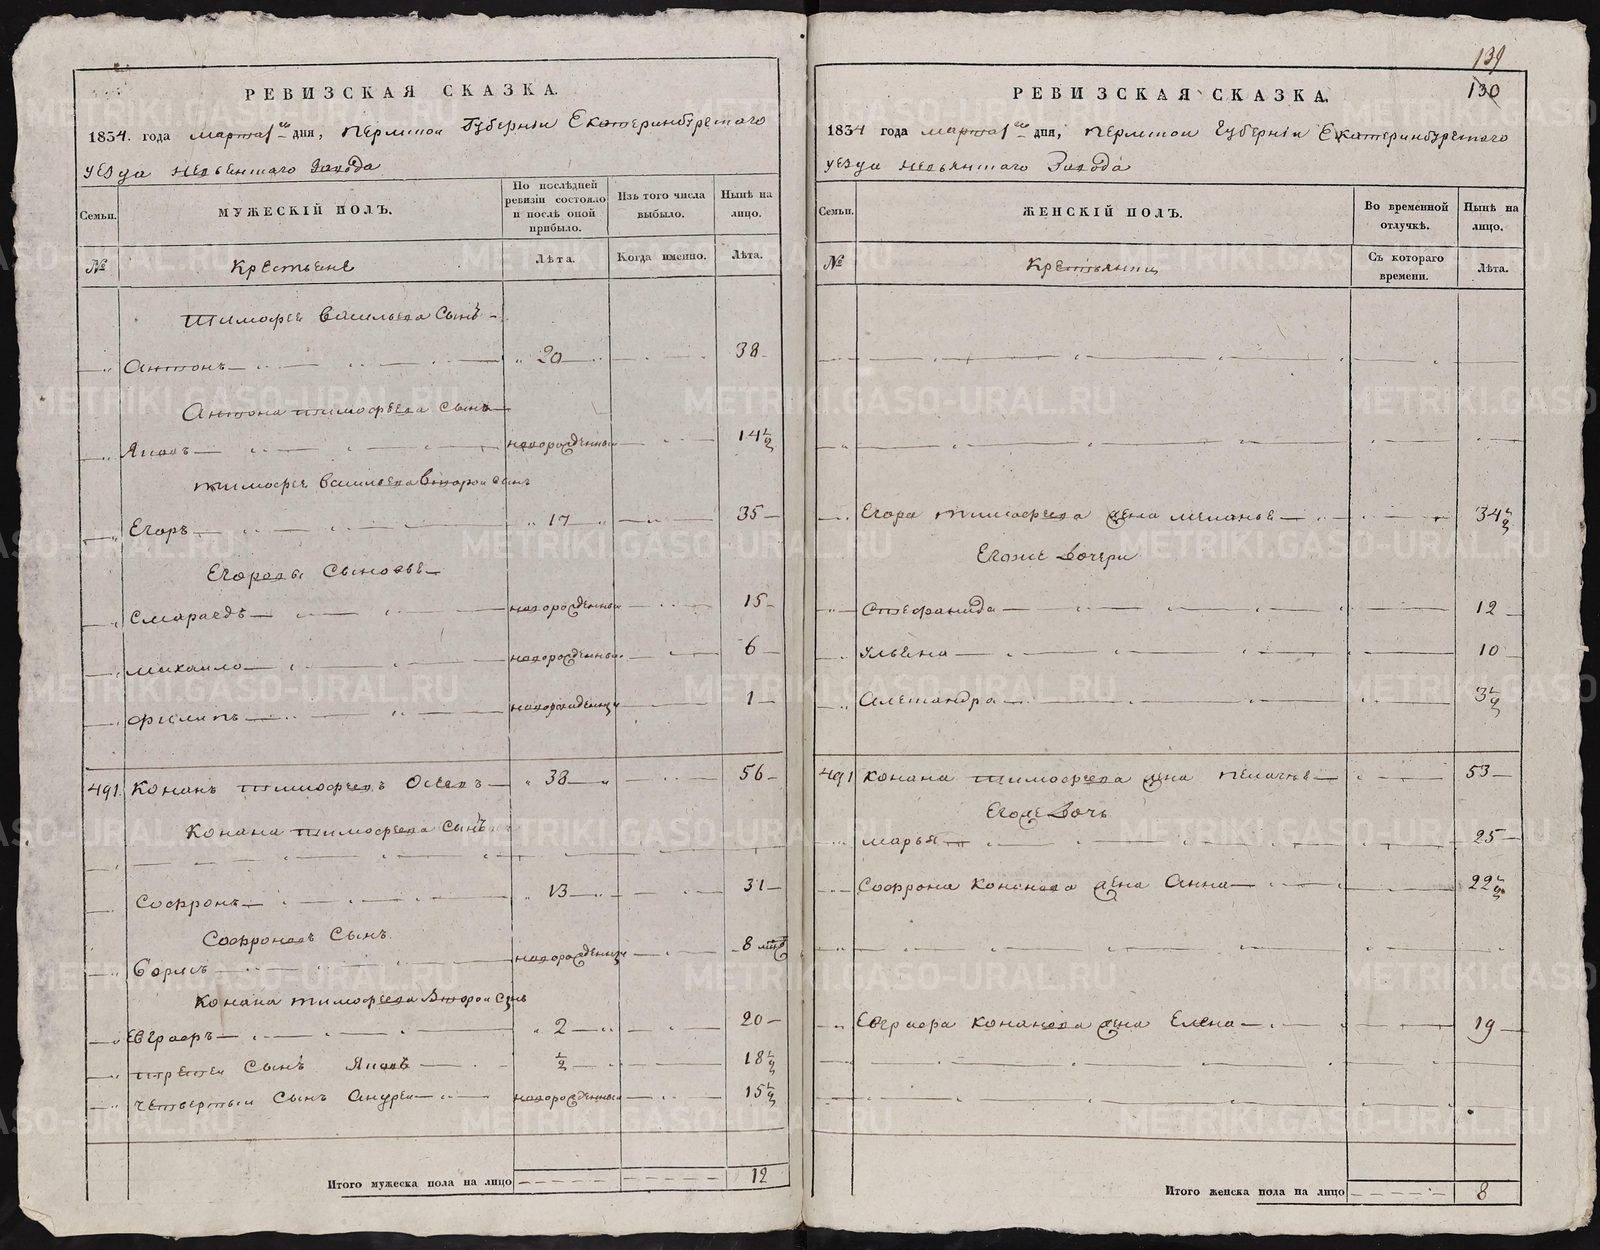 РЕВИЗСКАЯ СКАЗКА.
1834. года марта 1го дня, Пермской Губернии Екатеринбургского
уезда Невьянского Завода
Семьи.
МУЖЕСКІЙ ПОЛЪ.
По послѣдней ревизіи состояло и послѣ оной прибыло.
Изъ того числа выбыло.
Нынѣ на лицо.
№
Крестьяне
Лѣта.
Когда именно.
Лѣта.
Тимофеи Васильева Сынъ
Антонъ 20 38
Антона Тимофеева сынъ
Яковъ новорожденный 14 1/2
Тимофеи Васильева Второй сынъ
Егоръ 17 35
Егоровы Сыновье
Смарагдъ новорожденный 15
Михаило новорожденный 6
Филипъ новорожденный 1
491 Конанъ Тимофеевъ Осевъ 38 56
Конана Тимофеева Сынъ
Софронъ 13 31
Софроновъ Сынъ
Борисъ новорожденный 8 мцъ
Конана Тимофеева Второй сынъ
Евграфъ 2 20
третей Сынъ Яковъ 1/2 18 1/2
четвертый Сынъ Андреи новорожденный 15 1/2
Итого мужеска пола на лицо 12
139
130
РЕВИЗСКАЯ СКАЗКА.
1834 года марта 1го дня, Пермской Губерніи Екатеринбургского
уезда Невьянского Завода
Семьи.
ЖЕНСКІЙ ПОЛЪ.
Во временной отлучкѣ.
Нынѣ на лицо.
№
Крестьянки
Съ котораго времени.
Лѣта.
Егора Тимофеева жена Меланье 34 1/2
Егоже дочери
Стефанида 12
Ульена 10
Александра 3 1/2
491 Конана Тимофеева жена Пелагие 53
Егоже Дочь
Марья 25
Софрона Конанова жена Анна 22 1/2
Евграфа Конанова жена Елена 19
Итого женска пола на лицо 8
METRIKI.GASO-URAL.RU